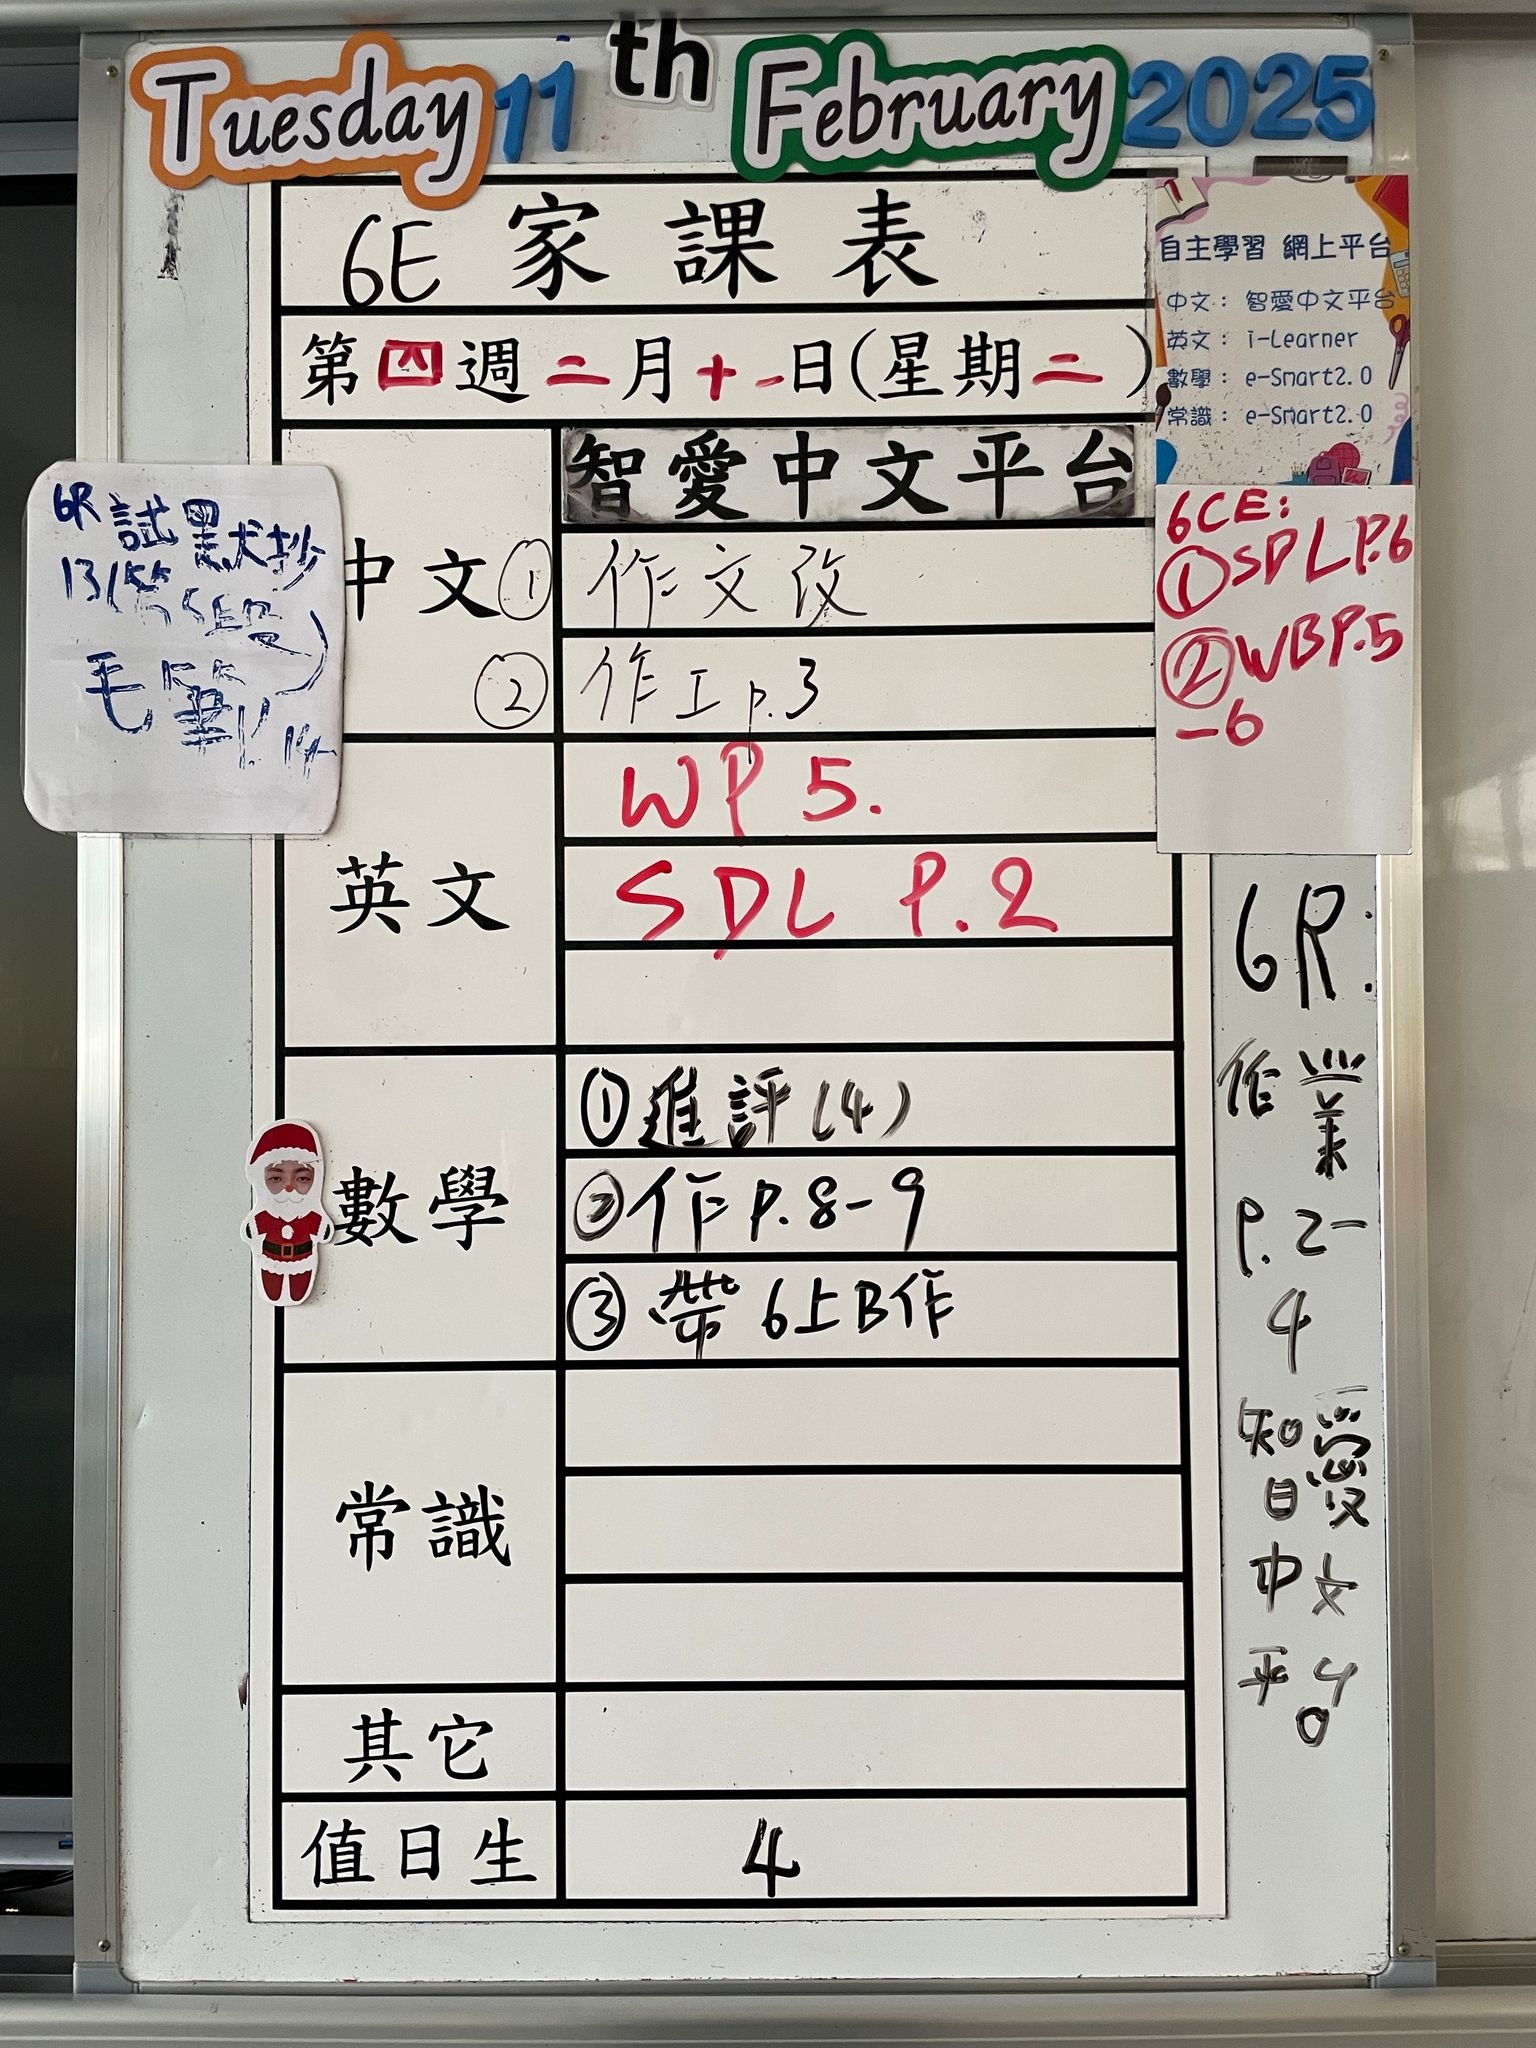 Tuesday 11th February 2025
6E 家課表
第四週二月十一日(星期二)
自主學習 網上平台
中文： 智愛中文平台
英文： i-Learner
數學： e-Smart2.0
常識： e-Smart2.0
中文
智愛中文平台
① 作文改
② 作工p.3
6R 試默抄
13(第5段)
毛筆P.14
6CE:
①SDLP.6
②WBP.5
-6
英文
WP 5.
SDL P.2
數學
①進評(4)
②作P.8-9
③帶6上B作
常識
其它
值日生
4
6R:
作業
P.2-
4
智愛
中文
平台